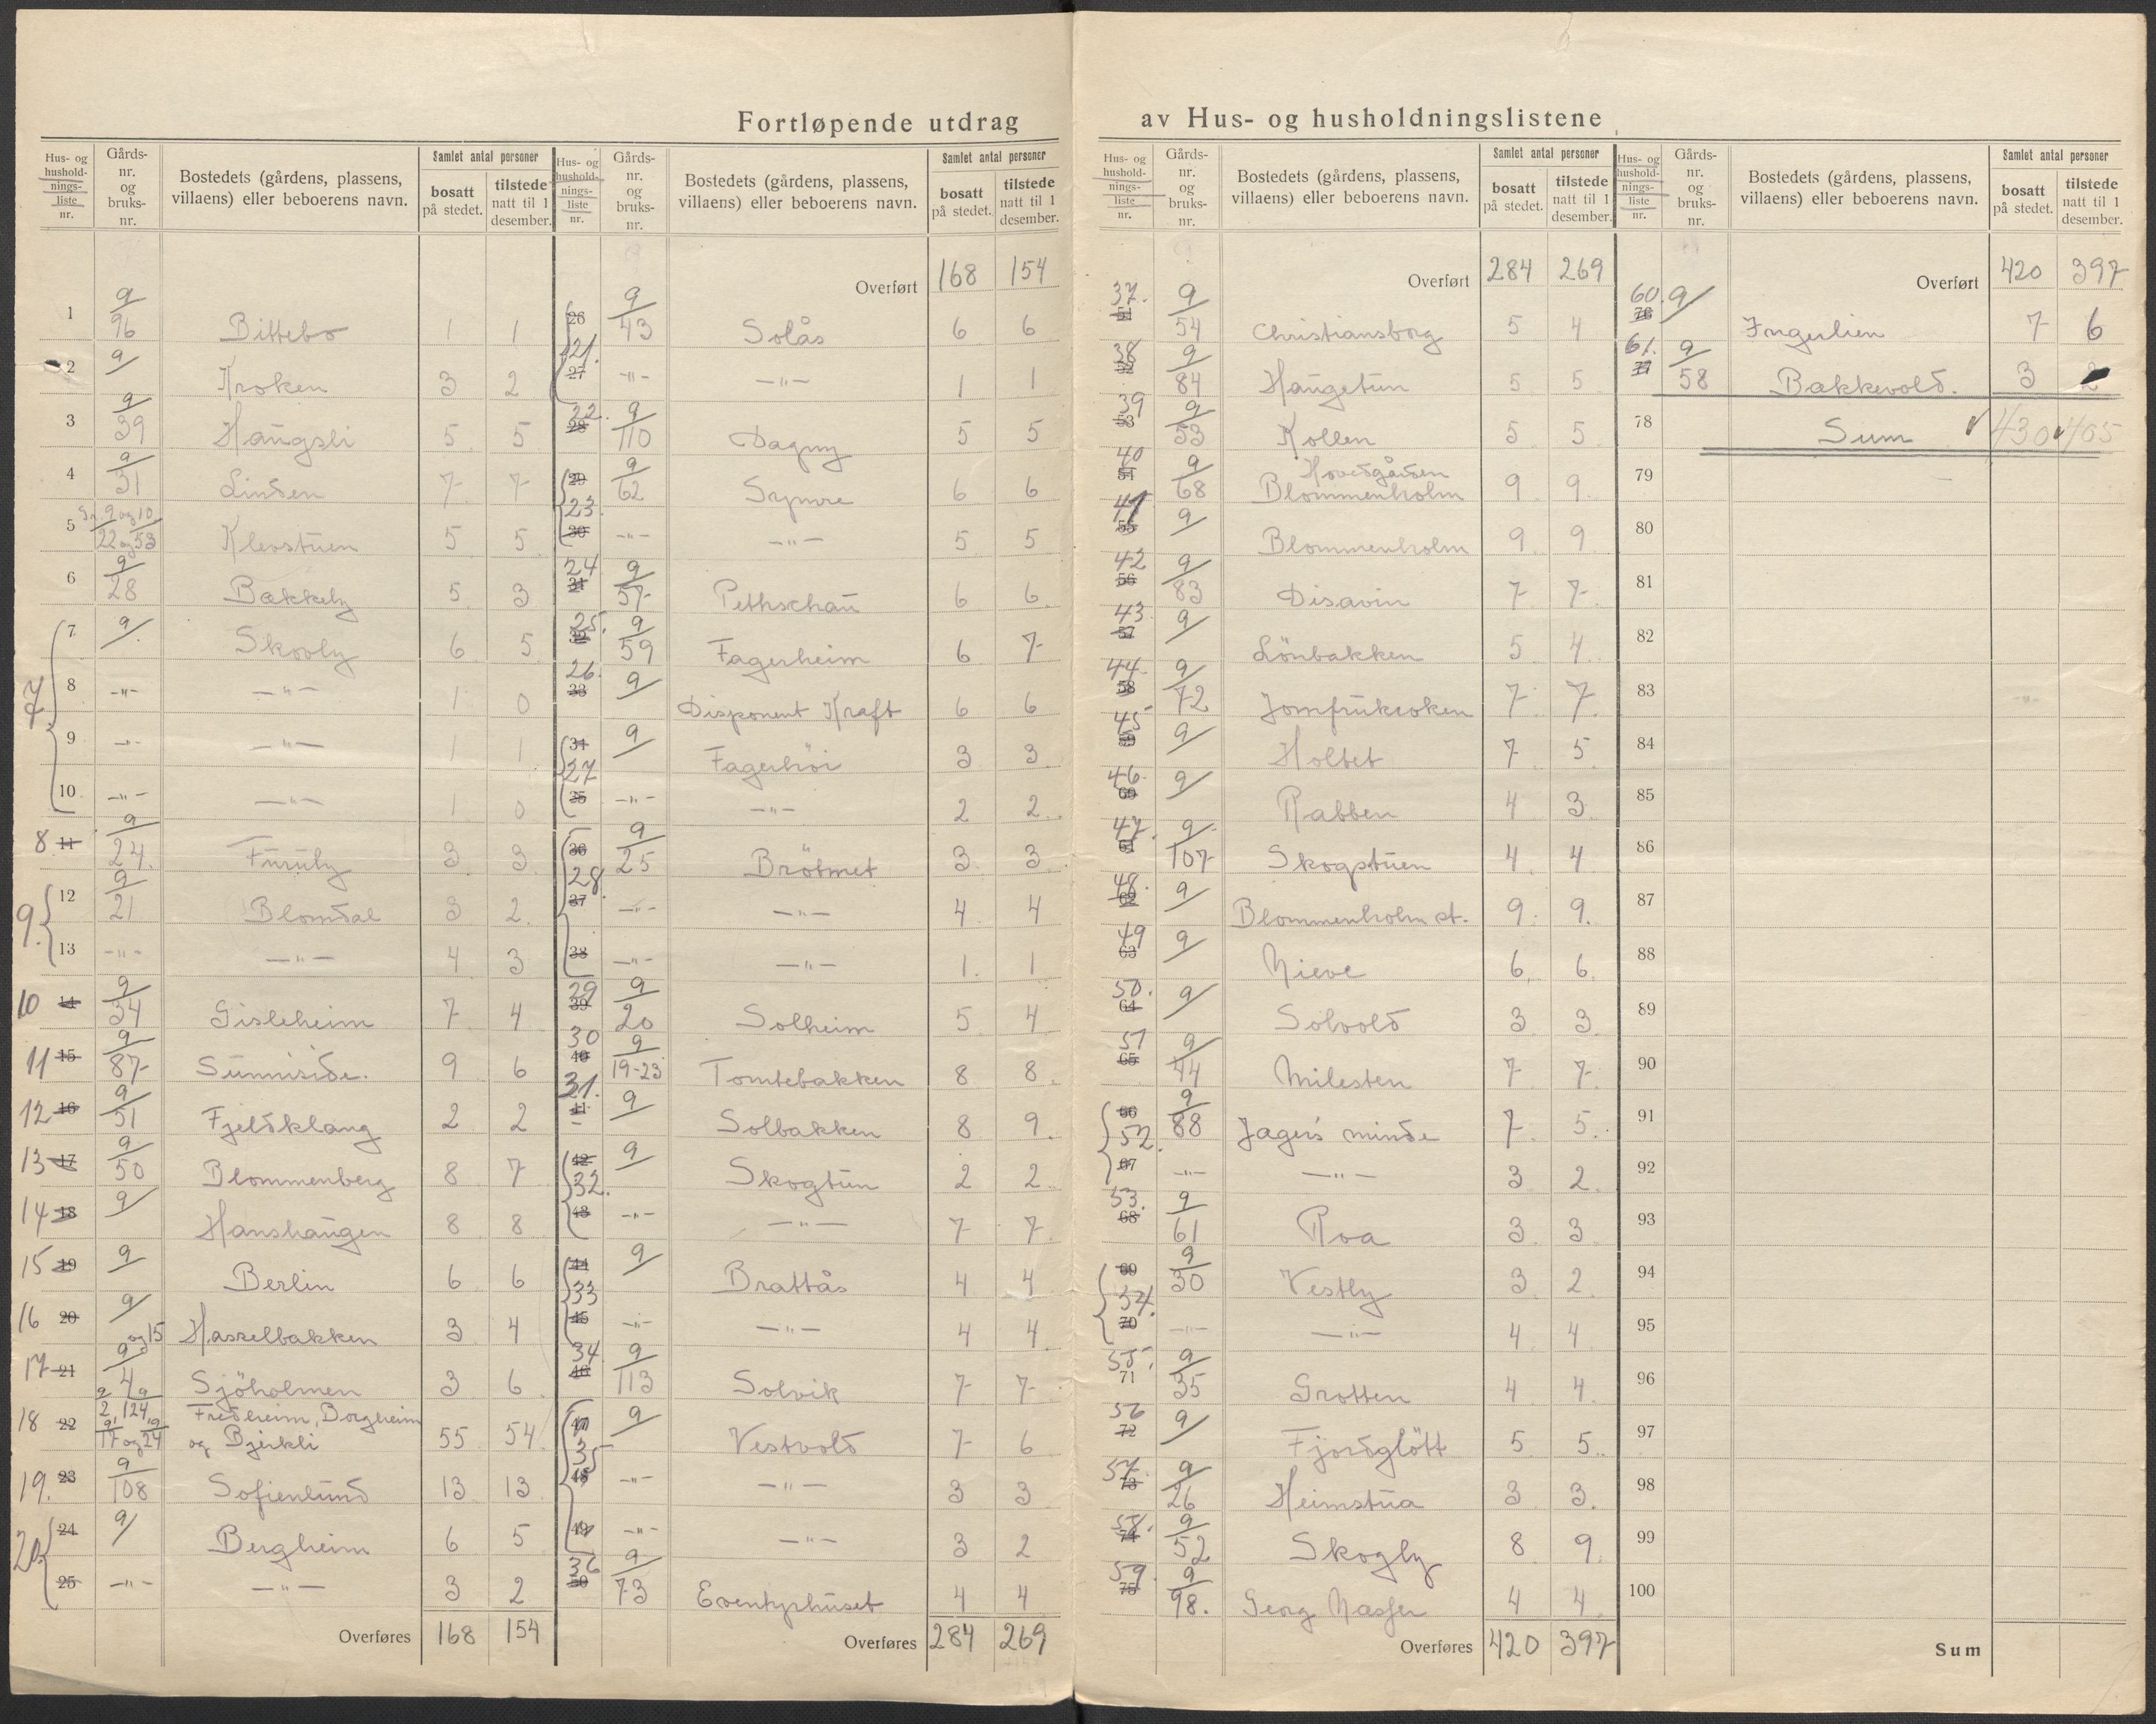 Fortløpende utdrag av Hus- og husholdningslistene
Hus- og hushold-nings-liste nr. | Gårds-nr. og bruks-nr. | Bostedets (gårdens, plassens, villaens) eller beboerens navn. | Samlet antal personer | bosatt på stedet. | tilstede natt til 1 desember.
1 | 9/96 | Bittebo | 1 | 1
2 | 9/ | Kroken | 3 | 2
3 | 9/39 | Haugsli | 5 | 5
4 | 9/31 | Linden | 7 | 7
5 | Gr. 9 og 10 / 22 og 53 | Klevstuen | 5 | 5
6 | 9/28 | Bakkely | 5 | 3
7 | 7 | 9/ | Skovly | 6 | 5
8 | -"- | -"- | 1 | 0
9 | -"- | -"- | 1 | 1
10 | -"- | -"- | 1 | 0
8 | 11 | 9/24 | Furuly | 3 | 3
9. | 12 | 9/21 | Blomdal | 3 | 2
13 | -"- | -"- | 4 | 3
10 | 14 | 9/34 | Gisleheim | 7 | 4
11 | 15 | 9/87 | Sunniside. | 9 | 6
12 | 16 | 9/51 | Fjeldklang | 2 | 2
13 | 17 | 9/50 | Blommenberg | 8 | 7
14 | 18 | 9/ | Hanshaugen | 8 | 8
15 | 19 | 9/ | Berlin | 6 | 6
16 | 20 | 9/ og 15 | Hasselbakken | 3 | 4
17 | 21 | 9/4 | Sjöholmen | 3 | 6
18 | 22 | 9/2, 9/124, 9/17 og 9/24 | Fredheim, Borgheim og Bjerkli | 55 | 54
19. | 23 | 9/108 | Sofienlund | 13 | 13
20 | 24 | 9/ | Bergheim | 6 | 5
25 | -"- | -"- | 3 | 2
Overføres | 168 | 154
Hus- og hushold-nings-liste nr. | Gårds-nr. og bruks-nr. | Bostedets (gårdens, plassens, villaens) eller beboerens navn. | Samlet antal personer | bosatt på stedet. | tilstede natt til 1 desember.
Overført | 168 | 154
21. | 26 | 9/43 | Solås | 6 | 6
27 | -"- | -"- | 1 | 1
22. | 28 | 9/110 | Dagny | 5 | 5
23. | 29 | 9/62 | 6 | 6
30 | -"- | -"- | 5 | 5
24 | 31 | 9/57 | Pethschau | 6 | 6
25. | 32 | 9/59 | Fagerheim | 6 | 7
26. | 33 | 9/ | Disponent Kraft | 6 | 6
27 | 34 | 9/ | Fagerhöi | 3 | 3
35 | -"- | -"- | 2 | 2
28. | 36 | 9/25 | Bråtmet | 3 | 3
37 | -"- | -"- | 4 | 4
38 | -"- | -"- | 1 | 1
29 | 39 | 9/20 | Solheim | 5 | 4
30 | 40 | 9/19-23 | Tomtebakken | 8 | 8
31. | 41 | 9/ | Solbakken | 8 | 9
32. | 42 | 9/ | Skogtun | 2 | 2
43 | -"- | -"- | 7 | 7
33 | 44 | 9/ | Brattås | 4 | 4
45 | -"- | -"- | 4 | 4
34 | 46 | 9/113 | Solvik | 7 | 7
35 | 47 | 9/ | Vestvold | 7 | 6
48 | -"- | -"- | 3 | 3
49 | -"- | -"- | 3 | 2
36 | 50 | 9/73 | Eventyrhuset | 4 | 4
Overføres | 284 | 269
Hus- og hushold-nings-liste nr. | Gårds-nr. og bruks-nr. | Bostedets (gårdens, plassens, villaens) eller beboerens navn. | Samlet antal personer | bosatt på stedet. | tilstede natt til 1 desember.
Overført | 284 | 269
37. | 51 | 9/54 | Christiansborg | 5 | 4
38 | 52 | 9/84 | Haugetun | 5 | 5
39 | 53 | 9/53 | Kollen | 5 | 5
40 | 54 | 9/68 | Hovedgården Blommenholm | 9 | 9
41 | 55 | 9/ | Blommenholm | 9 | 9
42 | 56 | 9/83 | Disavin | 7 | 7
43 | 57 | 9/ | Lönbakken | 5 | 4
44. | 58 | 9/72 | Jomfrukroken | 7 | 7
45 | 59 | 9/ | Holtet | 7 | 5
46. | 60 | 9/ | Rabben | 4 | 3
47. | 61 | 9/107 | Skogstuen | 4 | 4
48. | 62 | 9/ | Blommenholm st. | 9 | 9.
49 | 63 | 9/ | Nieve | 6 | 6
50. | 64 | 9/ | Solvold | 3 | 3
51 | 65 | 9/44 | Milesten | 7 | 7
52. | 66 | 9/88 | Jager's minde | 7 | 5
67 | -"- | -"- | 3 | 2
53. | 68 | 9/61 | Roa | 3 | 3
54. | 69 | 9/30 | Vestly | 3 | 2
70 | -"- | -"- | 4 | 4
55. | 71 | 9/35 | Grotten | 4 | 4
56 | 72 | 9/ | Fjordglött | 5 | 5
57. | 73 | 9/26 | Heimstua | 3 | 3.
58. | 74 | 9/52 | Skogly | 8 | 9
59. | 75 | 9/98. | Georg | 4 | 4
Overføres | 420 | 397
Hus- og hushold-nings-liste nr. | Gårds-nr. og bruks-nr. | Bostedets (gårdens, plassens, villaens) eller beboerens navn. | Samlet antal personer | bosatt på stedet. | tilstede natt til 1 desember.
Overført | 420 | 397
60. | 76 | 9/ | Ingerlien | 7 | 6
61. | 77 | 9/58 | Bakkevold. | 3 | 2
78 | Sum | 430 | 405
79
80
81
82
83
84
85
86
87
88
89
90
91
92
93
94
95
96
97
98
99
100
Sum